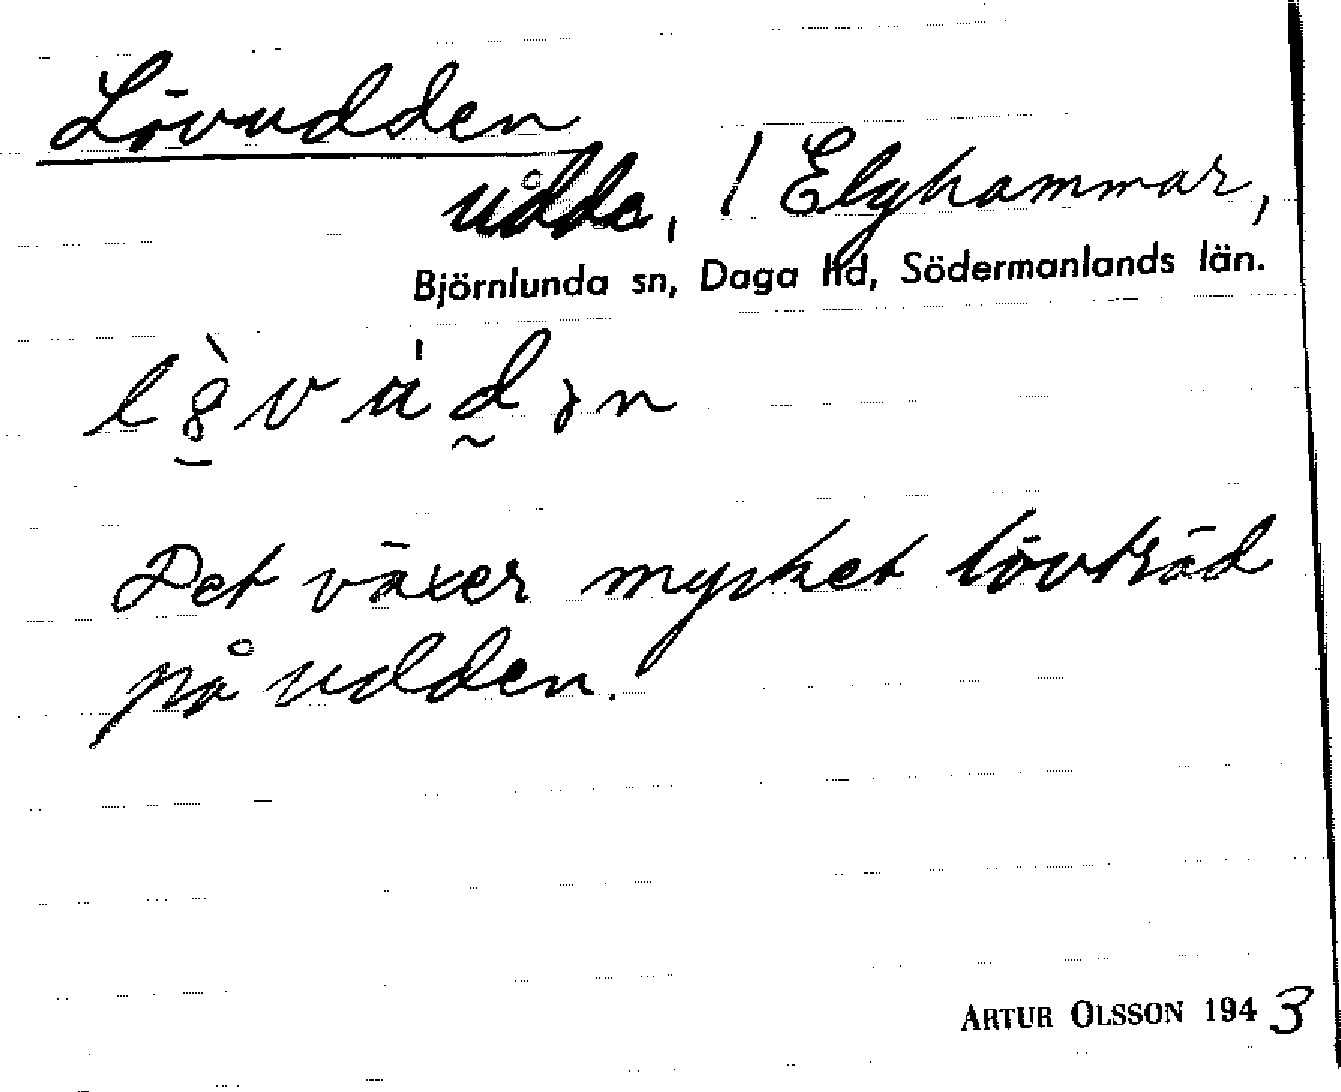 Lövudden
udde, / Elghammar,
Björnlunda sn, Daga hd, Södermanlands län.
Det växer mycket lövträd
på udden.
ARTUR OLSSON 1943